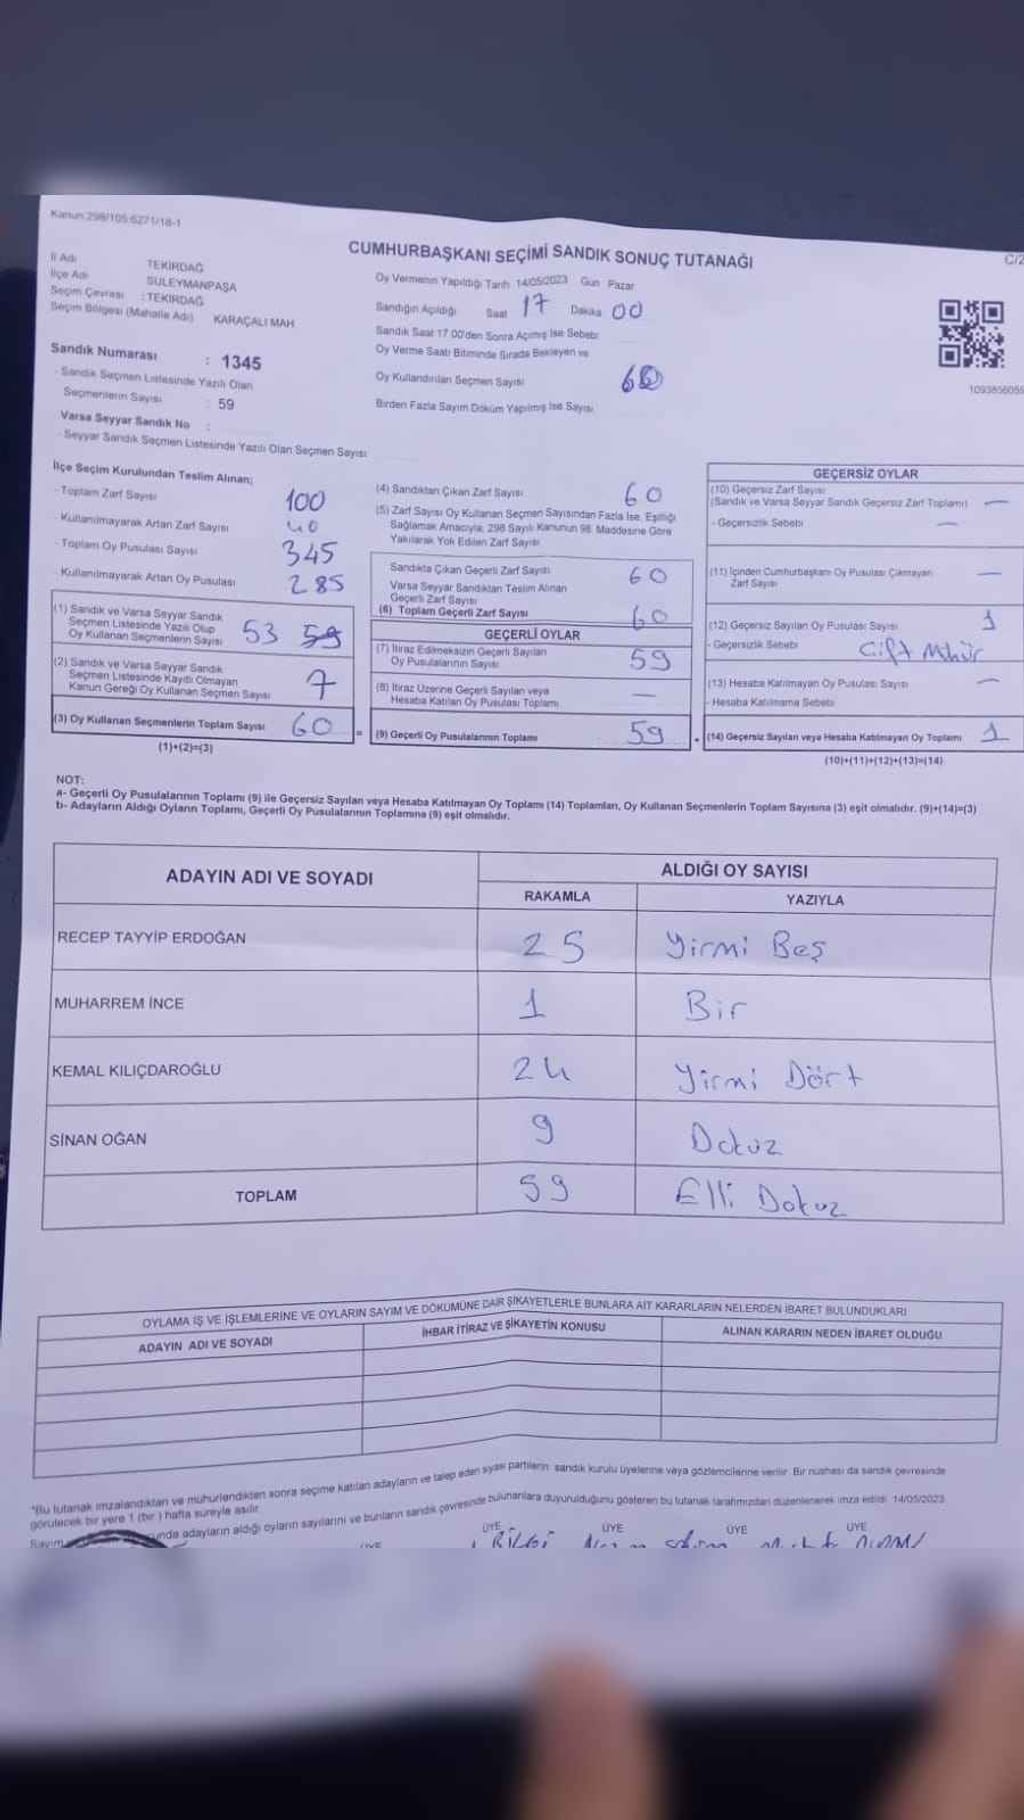 Kanun:298/105:6271/18-1
CUMHURBAŞKANI SEÇİMİ SANDIK SONUÇ TUTANAĞI
C/2
İl Adı TEKİRDAĞ
İlçe Adı SÜLEYMANPAŞA
Seçim Çevresi : TEKİRDAĞ
Seçim Bölgesi (Mahalle Adı) KARAÇALI MAH
Sandık Numarası : 1345
- Sandık Seçmen Listesinde Yazılı Olan
Seçmenlerin Sayısı : 59
Varsa Seyyar Sandık No :
- Seyyar Sandık Seçmen Listesinde Yazılı Olan Seçmen Sayısı
Oy Vermenin Yapıldığı Tarih 14/05/2023 Gün Pazar
Sandığın Açıldığı Saat 17 Dakika 00
Sandık Saat 17.00'den Sonra Açılmış İse Sebebi
Oy Verme Saati Bitiminde Sırada Bekleyen ve
Oy Kullandırılan Seçmen Sayısı
Birden Fazla Sayım Döküm Yapılmış İse Sayısı
İlçe Seçim Kurulundan Teslim Alınan;
- Toplam Zarf Sayısı 100
- Kullanılmayarak Artan Zarf Sayısı 40
- Toplam Oy Pusulası Sayısı 345
- Kullanılmayarak Artan Oy Pusulası 285
(1) Sandık ve Varsa Seyyar Sandık
Seçmen Listesinde Yazılı Olup
Oy Kullanan Seçmenlerin Sayısı 53 59
(2) Sandık ve Varsa Seyyar Sandık
Seçmen Listesinde Kayıtlı Olmayan
Kanun Gereği Oy Kullanan Seçmen Sayısı 7
(3) Oy Kullanan Seçmenlerin Toplam Sayısı 60 =
(1)+(2)=(3)
(4) Sandıktan Çıkan Zarf Sayısı 60
(5) Zarf Sayısı Oy Kullanan Seçmen Sayısından Fazla İse, Eşitliği
Sağlamak Amacıyla, 298 Sayılı Kanunun 98. Maddesine Göre
Yakılarak Yok Edilen Zarf Sayısı
Sandıkta Çıkan Geçerli Zarf Sayısı 60
Varsa Seyyar Sandıktan Teslim Alınan
Geçerli Zarf Sayısı
(6) Toplam Geçerli Zarf Sayısı 60
GEÇERLİ OYLAR
(7) İtiraz Edilmeksizin Geçerli Sayılan
Oy Pusulalarının Sayısı 59
(8) İtiraz Üzerine Geçerli Sayılan veya
Hesaba Katılan Oy Pusulası Toplamı —
(9) Geçerli Oy Pusulalarının Toplamı 59
GEÇERSİZ OYLAR
(10) Geçersiz Zarf Sayısı
(Sandık ve Varsa Seyyar Sandık Geçersiz Zarf Toplamı) —
- Geçersizlik Sebebi —
(11) İçinden Cumhurbaşkanı Oy Pusulası Çıkmayan
Zarf Sayısı —
(12) Geçersiz Sayılan Oy Pusulası Sayısı 1
- Geçersizlik Sebebi Çift Mühür
(13) Hesaba Katılmayan Oy Pusulası Sayısı —
- Hesaba Katılmama Sebebi
(14) Geçersiz Sayılan veya Hesaba Katılmayan Oy Toplamı 1
(10)+(11)+(12)+(13)=(14)
NOT:
a- Geçerli Oy Pusulalarının Toplamı (9) ile Geçersiz Sayılan veya Hesaba Katılmayan Oy Toplamı (14) Toplamları, Oy Kullanan Seçmenlerin Toplam Sayısına (3) eşit olmalıdır. (9)+(14)=(3)
b- Adayların Aldığı Oyların Toplamı, Geçerli Oy Pusulalarının Toplamına (9) eşit olmalıdır.
ADAYIN ADI VE SOYADI
ALDIĞI OY SAYISI
RAKAMLA YAZIYLA
RECEP TAYYİP ERDOĞAN 25 Yirmi Beş
MUHARREM İNCE 1 Bir
KEMAL KILIÇDAROĞLU 24 Yirmi Dört
SİNAN OĞAN 9 Dokuz
TOPLAM 59 Elli Dokuz
OYLAMA İŞ VE İŞLEMLERİNE VE OYLARIN SAYIM VE DÖKÜMÜNE DAİR ŞİKAYETLERLE BUNLARA AİT KARARLARIN NELERDEN İBARET BULUNDUKLARI
ADAYIN ADI VE SOYADI
İHBAR İTİRAZ VE ŞİKAYETİN KONUSU
ALINAN KARARIN NEDEN İBARET OLDUĞU
"Bu tutanak imzalandıktan ve mühürlendikten sonra seçime katılan adayların ve talep eden siyasi partilerin sandık kurulu üyelerine veya gözlemcilerine verilir. Bir nüshası da sandık çevresinde
görülecek bir yere 1 (bir) hafta süreyle asılır.
Sayım adayların aldığı oyların sayılarını ve bunların sandık çevresinde bulunanlara duyurulduğunu gösteren bu tutanak tarafımızdan düzenlenerek imza edildi. 14/05/2023
ÜYE ÜYE ÜYE ÜYE ÜYE